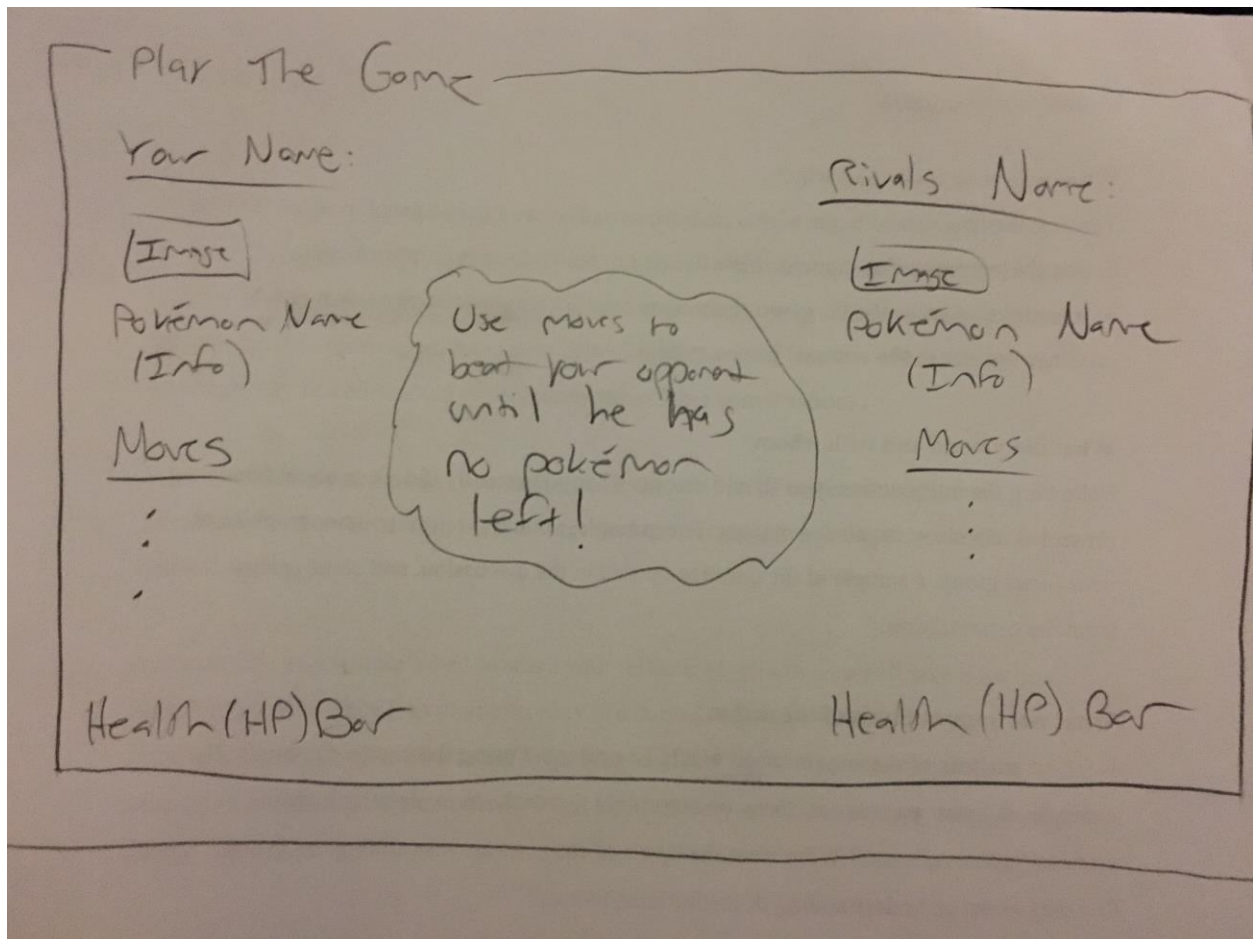 Play The Game
Your Name:
Image
Pokémon Name
(Info)
Moves
Health (HP) Bar
Use moves to
beat your opponent
until he has
no pokémon
left!
Rivals Name:
Image
Pokémon Name
(Info)
Moves
Health (HP) Bar